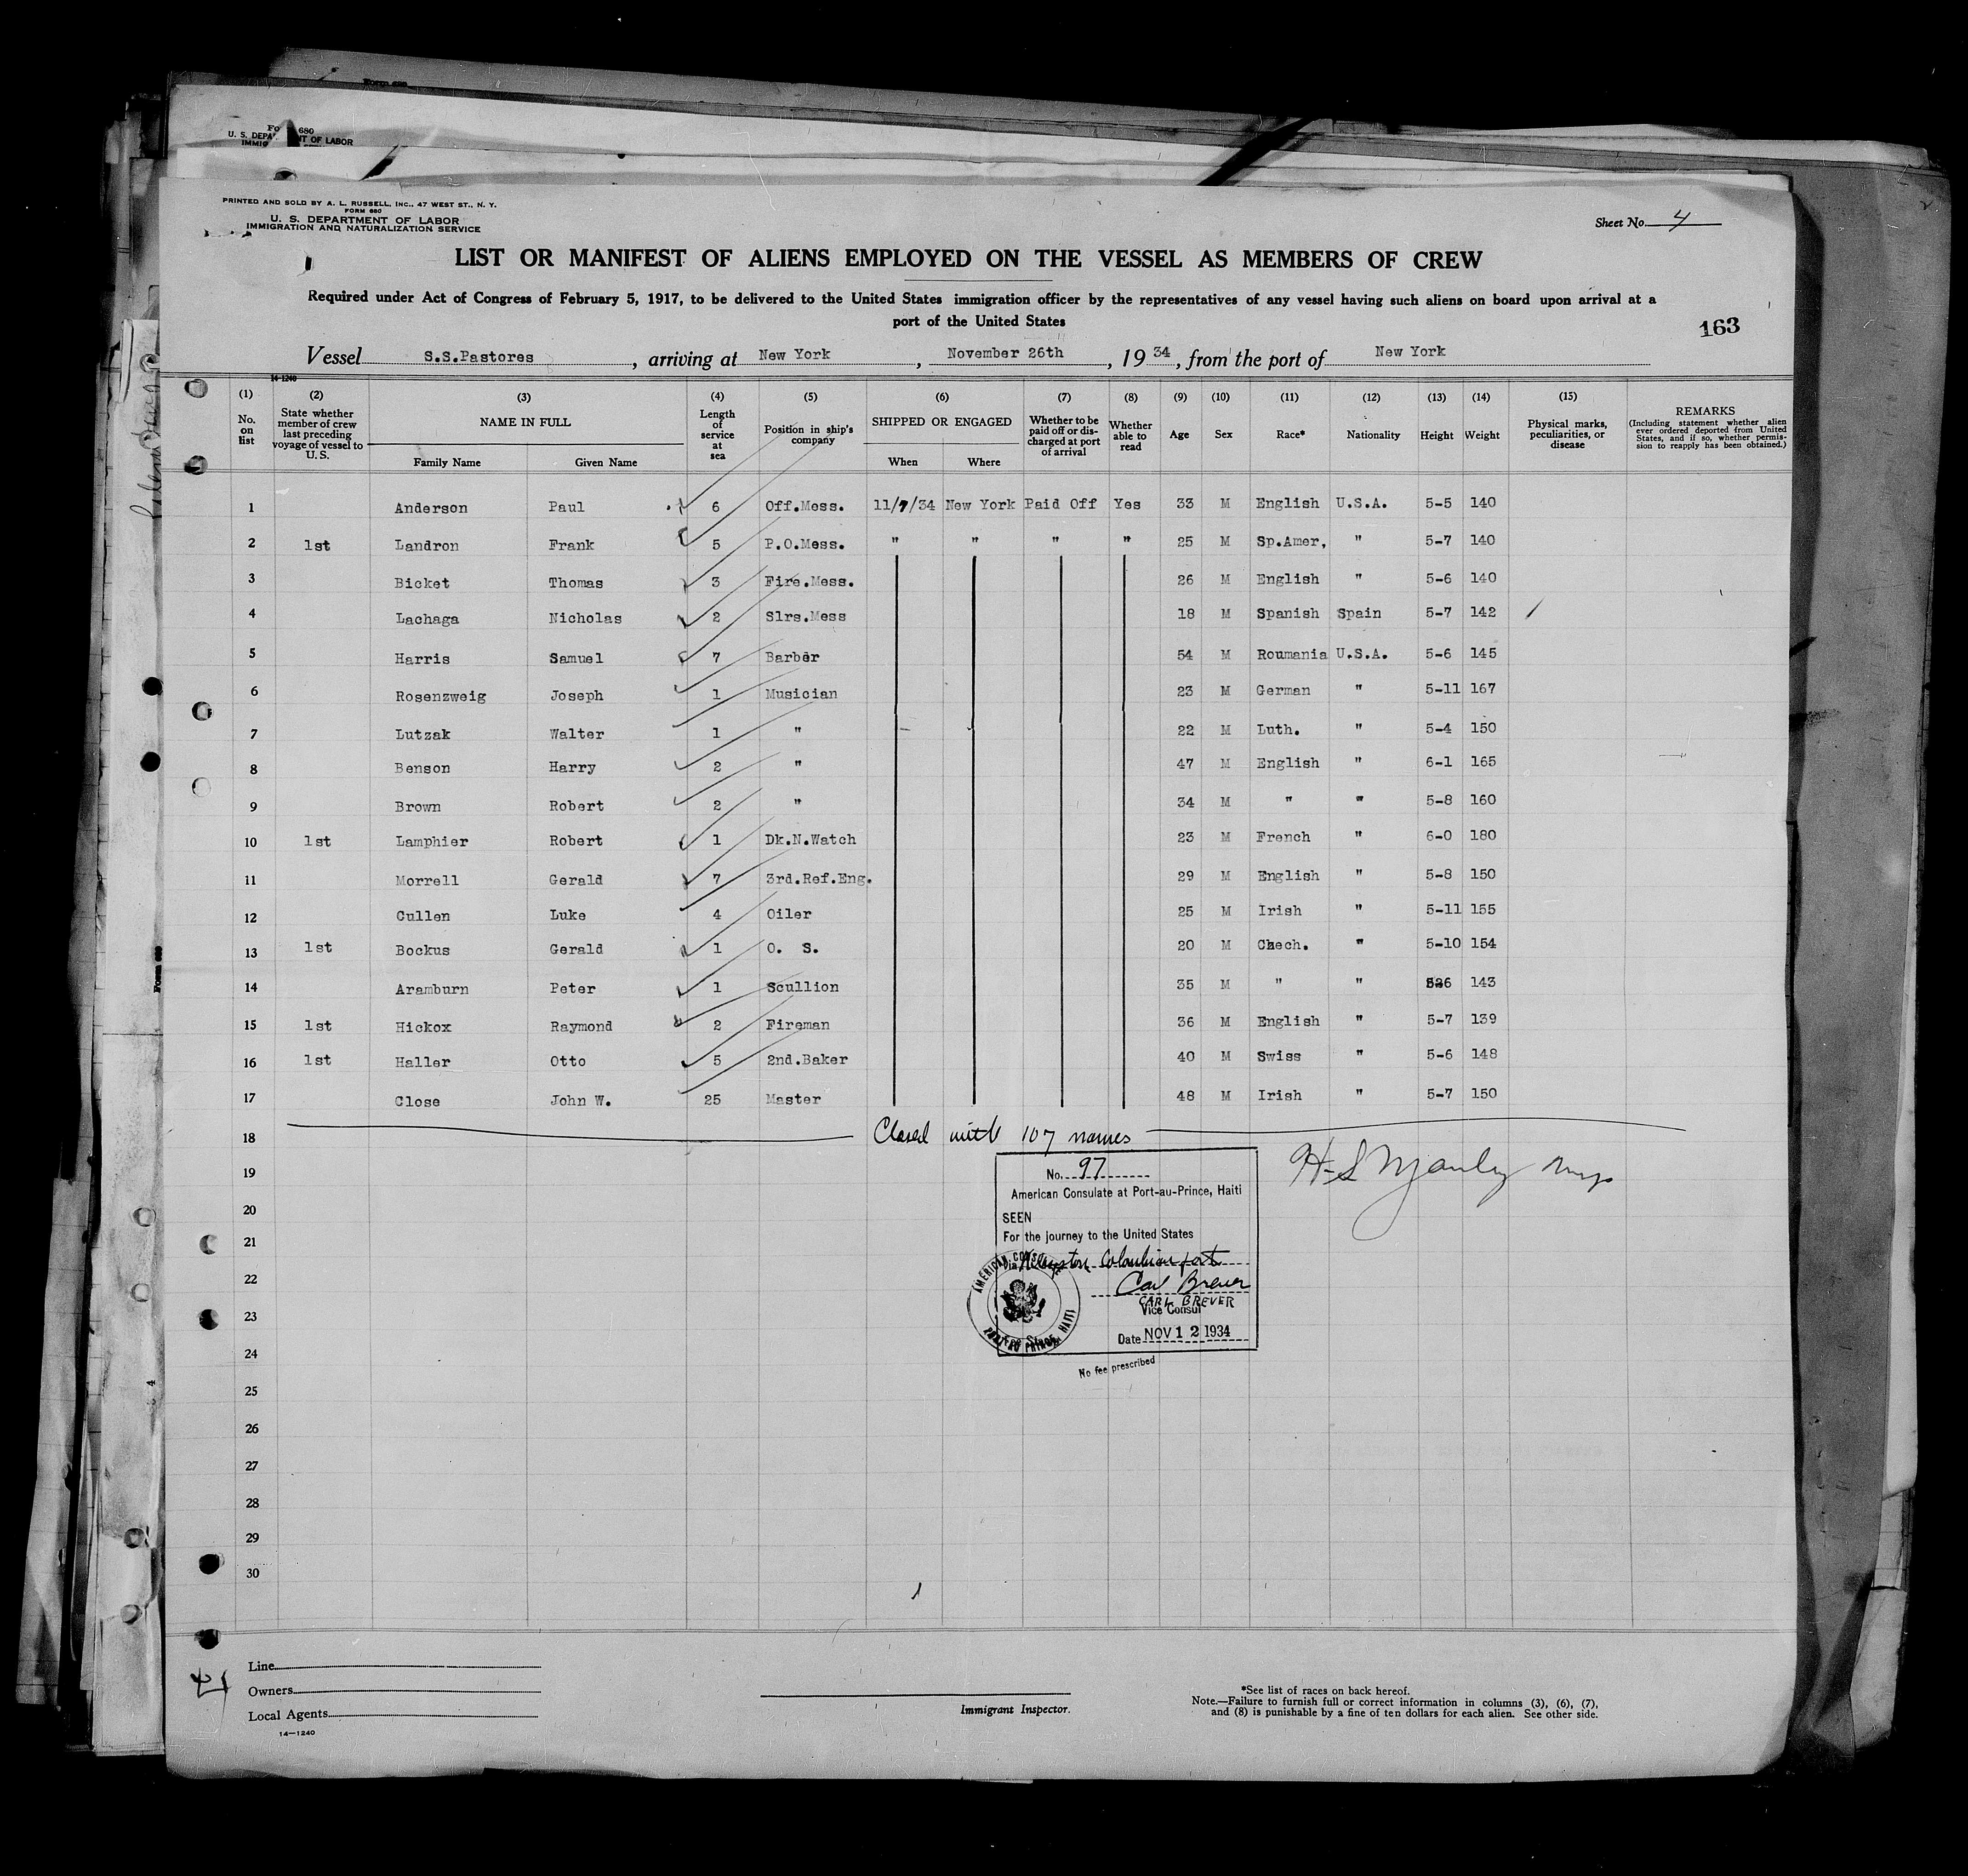 Form 680
Fo 680
U. S. DEPA NT OF LABOR
IMMIG
PRINTED AND SOLD BY A. L. RUSSELL, INC., 47 WEST ST., N. Y.
FORM 680
U. S. DEPARTMENT OF LABOR
IMMIGRATION AND NATURALIZATION SERVICE
Sheet No. 4
LIST OR MANIFEST OF ALIENS EMPLOYED ON THE VESSEL AS MEMBERS OF CREW
Required under Act of Congress of February 5, 1917, to be delivered to the United States immigration officer by the representatives of any vessel having such aliens on board upon arrival at a
port of the United States
163
Vessel S.S.Pastores, arriving at New York, November 26th, 1934, from the port of New York
14-1240
(1) (2) (3) (4) (5) (6) (7) (8) (9) (10) (11) (12) (13) (14) (15)
No. on list State whether member of crew last preceding voyage of vessel to U. S. NAME IN FULL Length of service at sea Position in ship's company SHIPPED OR ENGAGED Whether to be paid off or discharged at port of arrival Whether able to read Age Sex Race* Nationality Height Weight Physical marks, peculiarities, or disease REMARKS (Including statement whether alien ever ordered deported from United States, and if so, whether permission to reapply has been obtained.)
Family Name Given Name When Where
1 Anderson Paul 6 Off.Mess. 11/7/34 New York Paid Off Yes 33 M English U.S.A. 5-5 140
2 1st Landron Frank 5 P.O.Mess. " " " " 25 M Sp.Amer, " 5-7 140
3 Bicket Thomas 3 Fire.Mess. 26 M English " 5-6 140
4 Lachaga Nicholas 2 Slrs.Mess 18 M Spanish Spain 5-7 142
5 Harris Samuel 7 Barber 54 M Roumania U.S.A. 5-6 145
6 Rosenzweig Joseph 1 Musician 23 M German " 5-11 167
7 Lutzak Walter 1 " 22 M Luth. " 5-4 150
8 Benson Harry 2 " 47 M English " 6-1 165
9 Brown Robert 2 " 34 M " " 5-8 160
10 1st Lamphier Robert 1 Dk.N.Watch 23 M French " 6-0 180
11 Morrell Gerald 7 3rd.Ref.Eng. 29 M English " 5-8 150
12 Cullen Luke 4 Oiler 25 M Irish " 5-11 155
13 1st Bockus Gerald 1 O. S. 20 M Czech. " 5-10 154
14 Aramburn Peter 1 Scullion 35 M " " 5-6 143
15 1st Hickox Raymond 2 Fireman 36 M English " 5-7 139
16 1st Haller Otto 5 2nd.Baker 40 M Swiss " 5-6 148
17 Close John W. 25 Master 48 M Irish " 5-7 150
18 Closed with 107 names
19
20
21
22
23
24
25
26
27
28
29
30
No. 97
American Consulate at Port-au-Prince, Haiti
SEEN
For the journey to the United States
Via Kingston, Colombian port
Carl Brever
CARL BREVER
Vice Consul
Date NOV 12 1934
AMERICAN CONSULATE
PORT AU PRINCE, HAITI
No fee prescribed
Line
Owners
Local Agents
14-1240
Immigrant Inspector.
*See list of races on back hereof.
Note.—Failure to furnish full or correct information in columns (3), (6), (7),
and (8) is punishable by a fine of ten dollars for each alien. See other side.